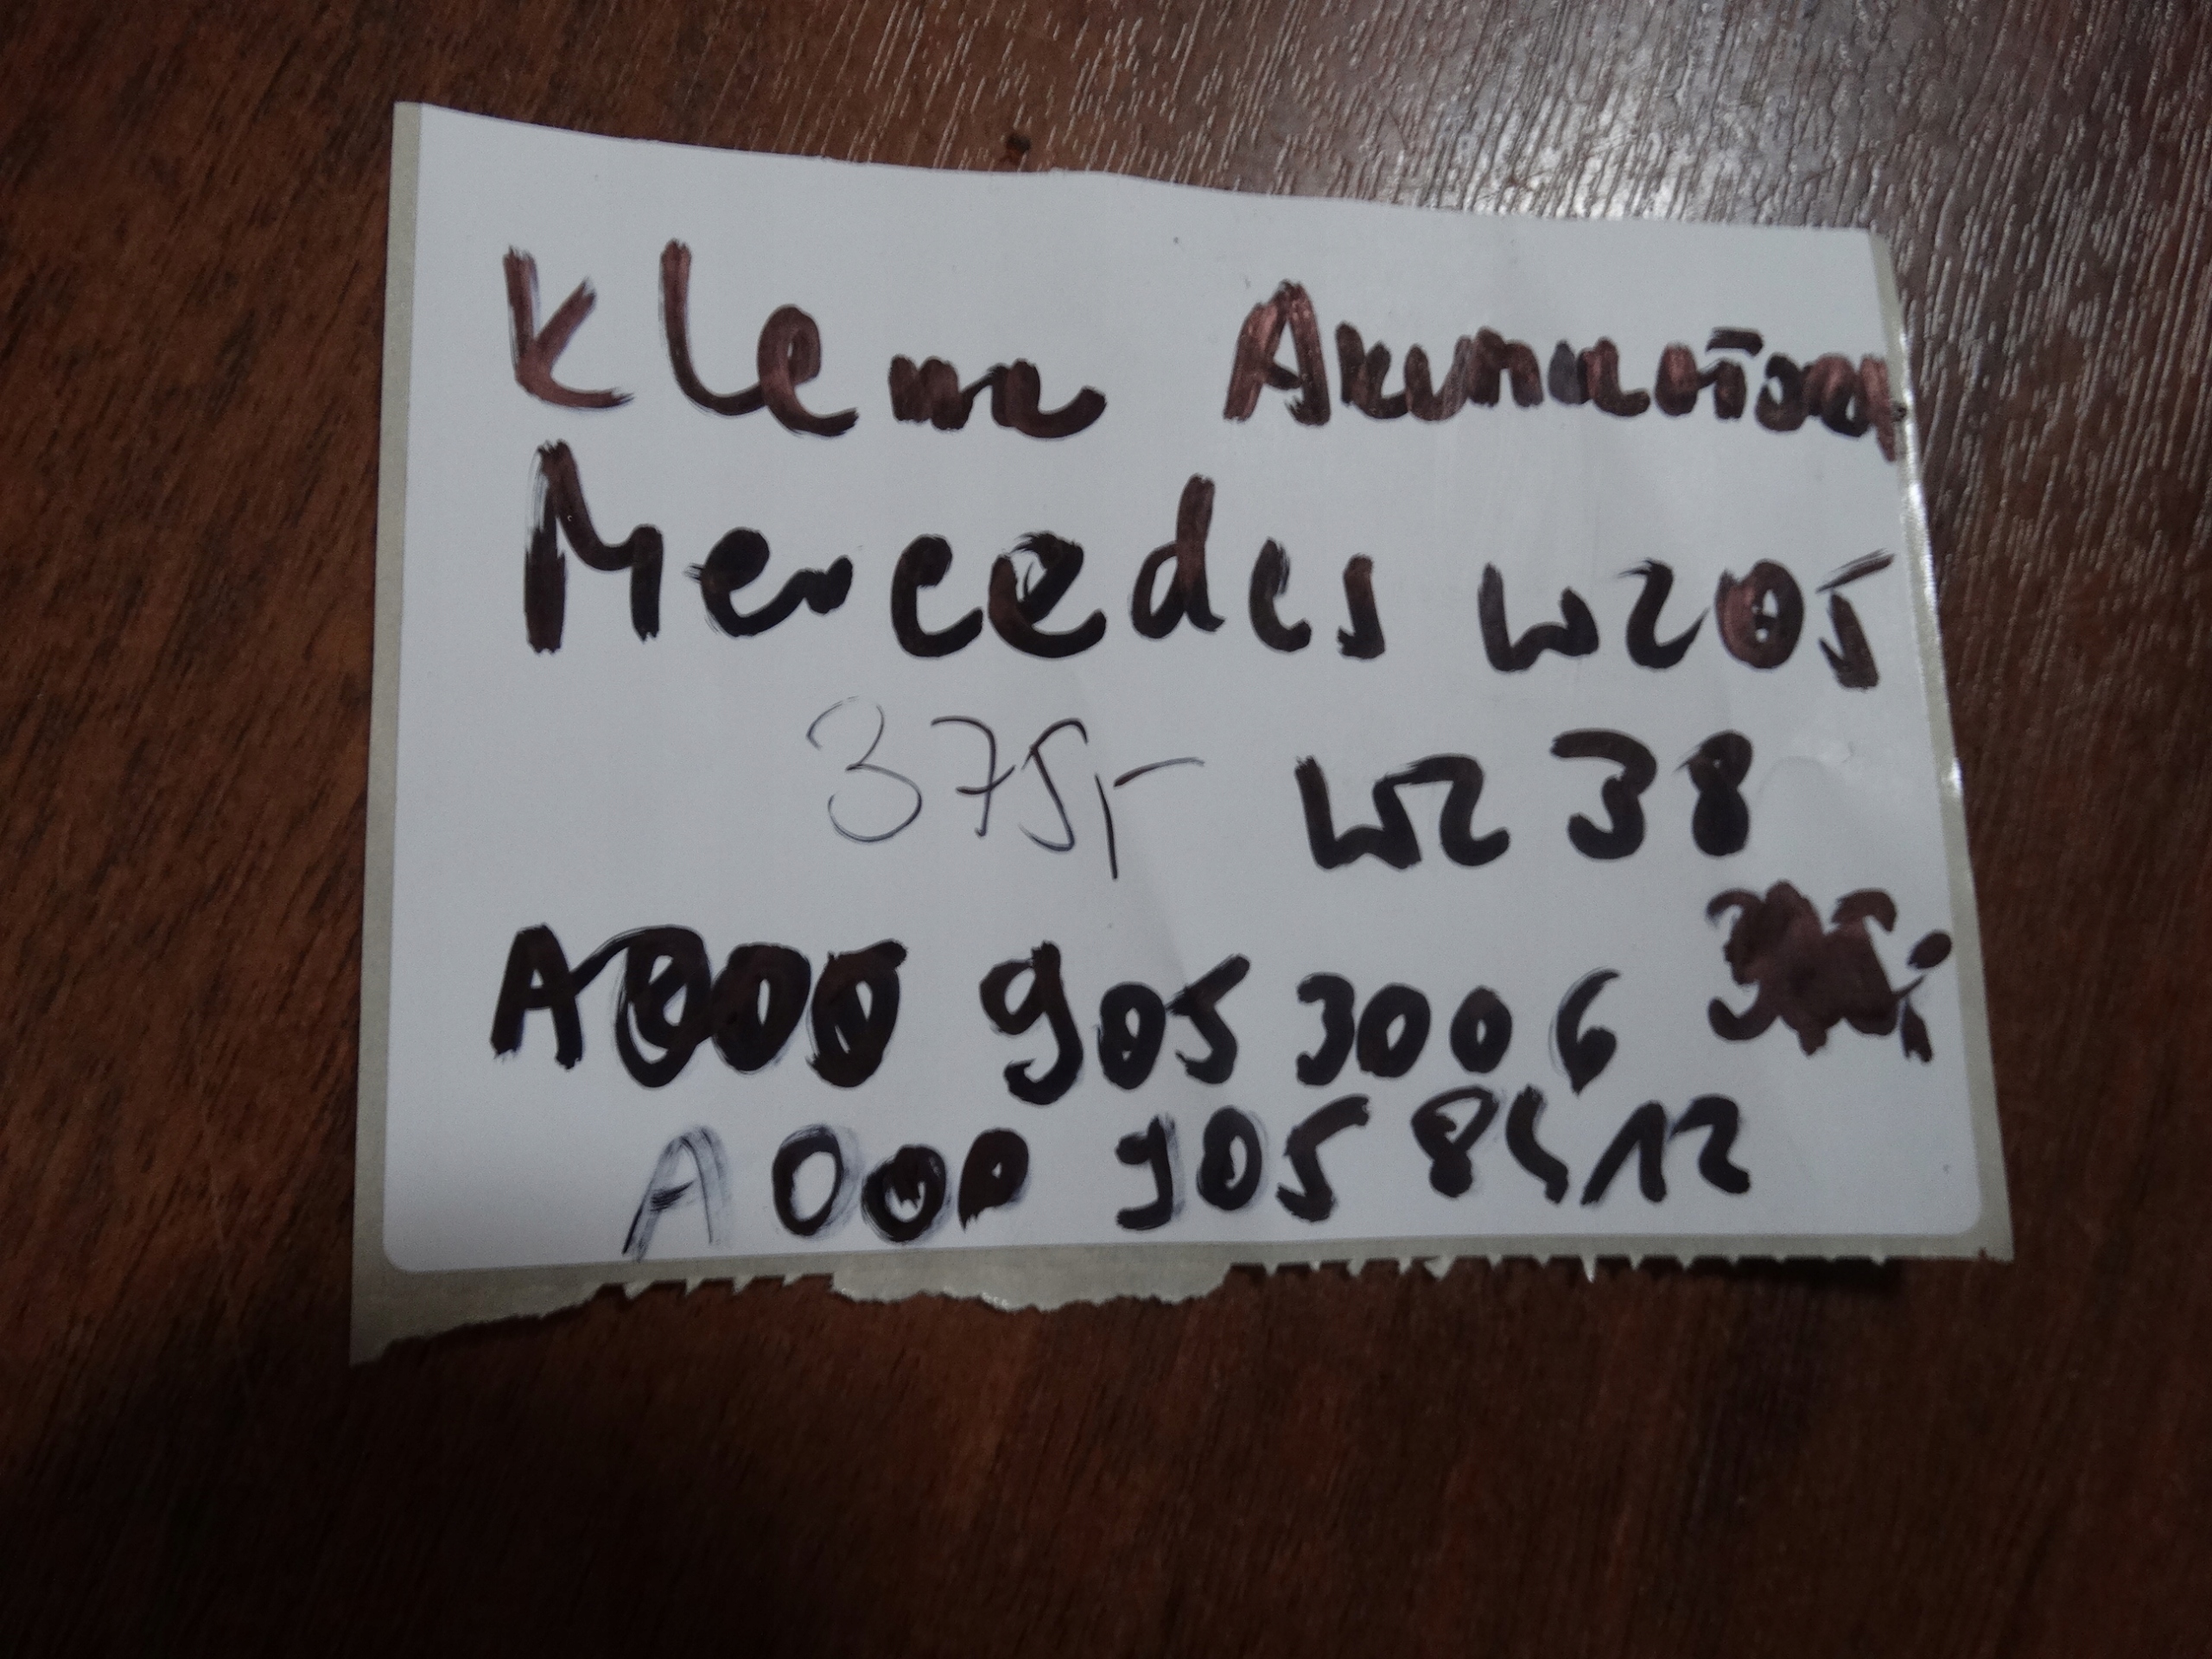 Klema Akumulator
Mercedes W205
375,- W238
A000 905 3006
A000 905 8412